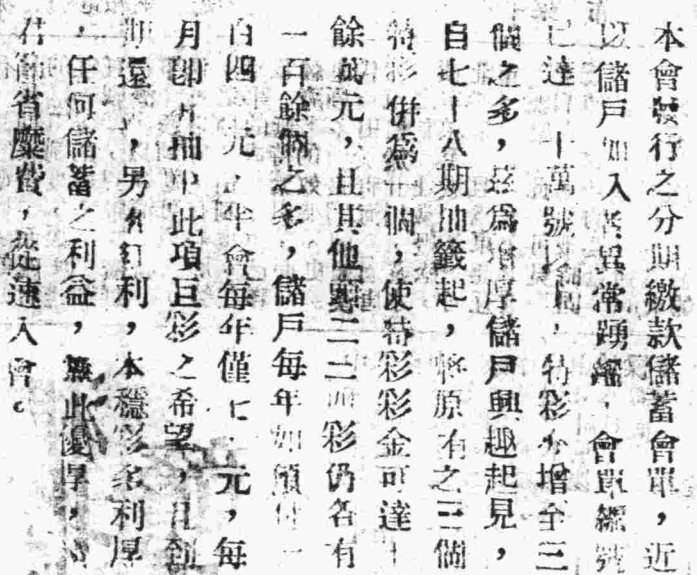 本會發行之分期繳款儲蓄會單，近
以儲戶加入者異常踴躍，會單編號
已達十萬號以上，特彩亦增至三
個之多，茲為增厚儲戶興趣起見，
自七十八期抽籤起，將原有之三個
特彩併為一個，使特彩彩金可達
餘萬元，且其他二三四彩仍各有
一百餘個之多，儲戶每年如須付一
百四元，半會每年僅七元，每
月即有抽中此項巨彩之希望，且到
期還，另有紅利，本穩彩多利厚
，任何儲蓄之利益，無此優厚，
君節省糜費，從速入會。